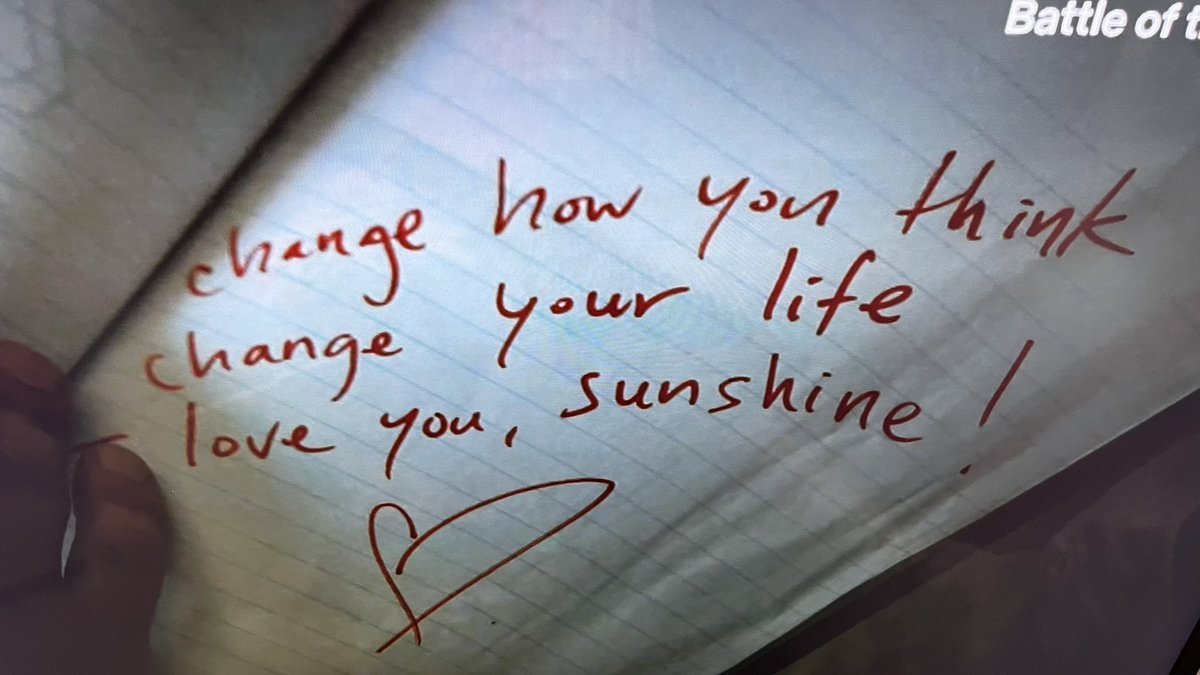 Battle of t
change how you think
change your life
love you, sunshine!